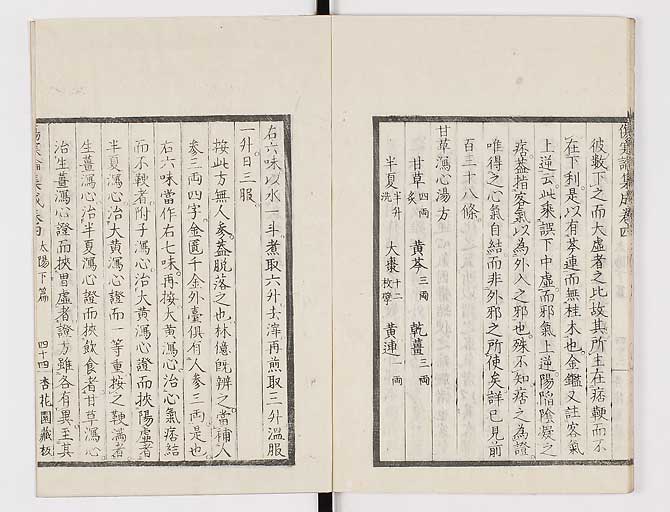 傷寒論集成卷四
彼數下之而大虛者之比故其所主在痞鞕而不
在下利是以有芩連而無桂木也金鑑又註客氣
上逆云此乘誤下中虛而邪氣上逆陽陷陰凝之
痞蓋指客氣以為外入之邪也殊不知痞之為證
唯得之心氣自結而非外邪之所使矣詳已見前
百三十八條
甘草瀉心湯方
甘草四兩炙 黃芩三兩 乾薑三兩
半夏半升洗 大棗十二枚擘 黃連一兩
右六味以水一斗煮取六升去滓再煎取三升溫服
一升日三服
按此方無人參蓋脫落之也林億旣辨之當補人
參三兩四字金匱千金外臺俱有人參三兩是也
右六味當作右七味再按大黃瀉心治心氣痞結
而不鞕者附子瀉心治大黃瀉心證而挾陽虛者
半夏瀉心治大黃瀉心證而一等重按之鞕滿者
生薑瀉心治半夏瀉心證而挾飲食者甘草瀉心
治生薑瀉心證而挾胃虛者證方雖各有異至其
傷寒論集成卷四 太陽下篇 四十四 杏花園藏板